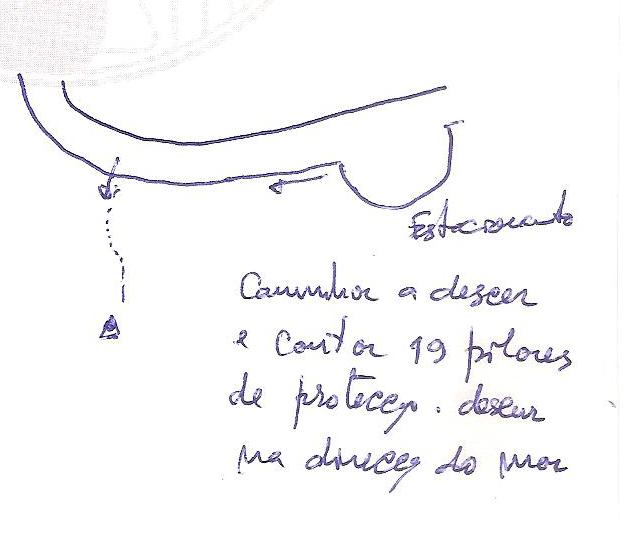 Estacionamento
Caminhar a descer
e contar 19 pilares
de protecção. descer
na direcção do mar